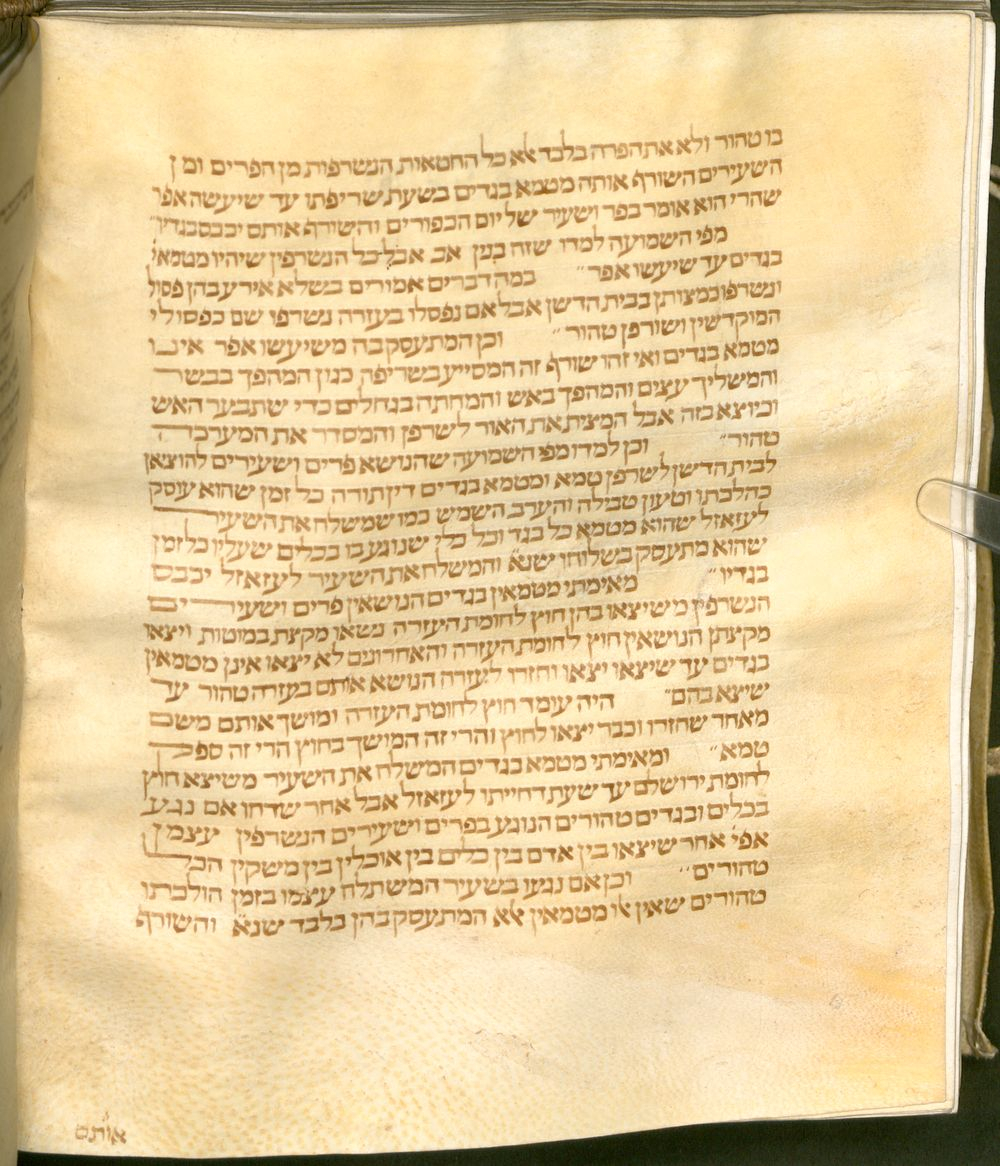 בו טהור ולא את הפרה בלבד אלא כל החטאות הנשרפות מן הפרים ומן
השעירים השורף אותה מטמא בגדים בשעת שריפתו עד שיעשה אפר
שהרי הוא אומר בפר ושעיר של יום הכפורים והשורף אותם יכבס בגדיו״
מפי השמועה למדו שזה בנין אב לכל הנשרפין שיהיו מטמאי׳
בגדים עד שיעשו אפר״ במה דברים אמורים בשלא אירע בהן פסול
ונשרפו כמצותן בבית הדשן אבל אם נפסלו בעזרה נשרפו שם כפסולי
המוקדשין ושורפן טהור״ וכן המתעסק בה משיעשו אפר אינו
מטמא בגדים ואי זהו שורף זה המסייע בשריפה כגון המהפך בבשר
והמשליך עצים והמהפך באש והמחתה בגחלים כדי שתבער האש
וכיוצא בזה אבל המצית את האור לשרפן והמסדר את המערכה
טהור״ וכן למדו מפי השמועה שהנושא פרים ושעירים להוצאן
לבית הדשן לשרפן טמא ומטמא בגדים דין תורה כל זמן שהוא עוסק
בהלכתו וטעון טבילה והערב השמש כמו שמשלח את השעיר
לעזאזל שהוא מטמא כל בגד וכל כלי שנוגע בו בכלים שעליו כל זמן
שהוא מתעסק בשלוחו שנא׳ והמשלח את השעיר לעזאזל יכבס
בגדיו״ מאימתי מטמאין בגדים הנושאין פרים ושעירים
הנשרפין משיצאו בהן חוץ לחומת העזרה נשאו מקצת במוטות ויצאו
מקצתן הנושאין חוץ לחומת העזרה והאחרונים לא יצאו אינן מטמאין
בגדים עד שיצאו יצאו וחזרו לעזרה הנושא אותם בעזרה טהור עד
שיצא בהם״ היה עומד חוץ לחומת העזרה ומושך אותם משם
מאחד שחזרו וכבר יצאו לחוץ והרי זה המושך בחוץ הרי זה ספק
טמא״ ומאימתי מטמא בגדים המשלח את השעיר משיצא חוץ
לחומת ירושלם עד שעת דחייתו לעזאזל אבל אחר שדחו אם נגע
בכלים ובגדים טהורים הנוגע בפרים ושעירים הנשרפין עצמן
אפי׳ אחר שיצאו בין אדם בין כלים בין אוכלין בין משקין הכל
טהורים״ וכן אם נגעו בשעיר המשתלח עצמו בזמן הולכתו
טהורים שאין לו מטמאין אלא המתעסק בהן בלבד שנא׳ והשורף
אותם